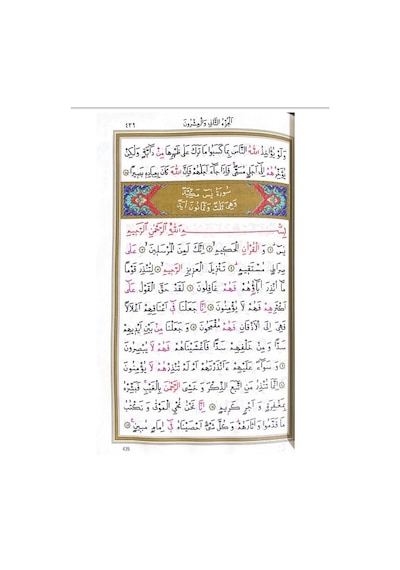 ٤٣٩ الجزء الثاني والعشرون
وَلَوْ يُؤَاخِذُ اللّٰهُ النَّاسَ بِمَا كَسَبُوا مَا تَرَكَ عَلٰى ظَهْرِهَا مِنْ دَٓابَّةٍ وَلٰكِنْ
يُؤَخِّرُهُمْ اِلٰٓى اَجَلٍ مُسَمًّى فَاِذَا جَٓاءَ اَجَلُهُمْ فَاِنَّ اللّٰهَ كَانَ بِعِبَادِهٖ بَصِيرًا
سورة يس مكية
وهي ثلث وثمانون آية
بِسْمِ اللّٰهِ الرَّحْمٰنِ الرَّحِيمِ
يٰسٓ ۝ وَ الْقُرْاٰنِ الْحَكِيمِ ۝ اِنَّكَ لَمِنَ الْمُرْسَلِينَ ۝ عَلٰى
صِرَاطٍ مُسْتَقِيمٍ ۝ تَنْزِيلَ الْعَزِيزِ الرَّحِيمِ ۝ لِتُنْذِرَ قَوْمًا
مَٓا اُنْذِرَ اٰبَٓاؤُهُمْ فَهُمْ غَافِلُونَ ۝ لَقَدْ حَقَّ الْقَوْلُ عَلٰٓى
اَكْثَرِهِمْ فَهُمْ لَا يُؤْمِنُونَ ۝ اِنَّا جَعَلْنَا فِٓى اَعْنَاقِهِمْ اَغْلَالًا
فَهِىَ اِلَى الْاَذْقَانِ فَهُمْ مُقْمَحُونَ ۝ وَ جَعَلْنَا مِنْ بَيْنِ اَيْدِيهِمْ
سَدًّا وَ مِنْ خَلْفِهِمْ سَدًّا فَاَغْشَيْنَاهُمْ فَهُمْ لَا يُبْصِرُونَ
۝ وَ سَوَٓاءٌ عَلَيْهِمْ ءَاَنْذَرْتَهُمْ اَمْ لَمْ تُنْذِرْهُمْ لَا يُؤْمِنُونَ
۝ اِنَّمَا تُنْذِرُ مَنِ اتَّبَعَ الذِّكْرَ وَ خَشِىَ الرَّحْمٰنَ بِالْغَيْبِ فَبَشِّرْهُ
بِمَغْفِرَةٍ وَ اَجْرٍ كَرِيمٍ ۝ اِنَّا نَحْنُ نُحْىِ الْمَوْتٰى وَ نَكْتُبُ
مَا قَدَّمُوا وَ اٰثَارَهُمْ وَ كُلَّ شَىْءٍ اَحْصَيْنَاهُ فِٓى اِمَامٍ مُبِينٍ ۝
439